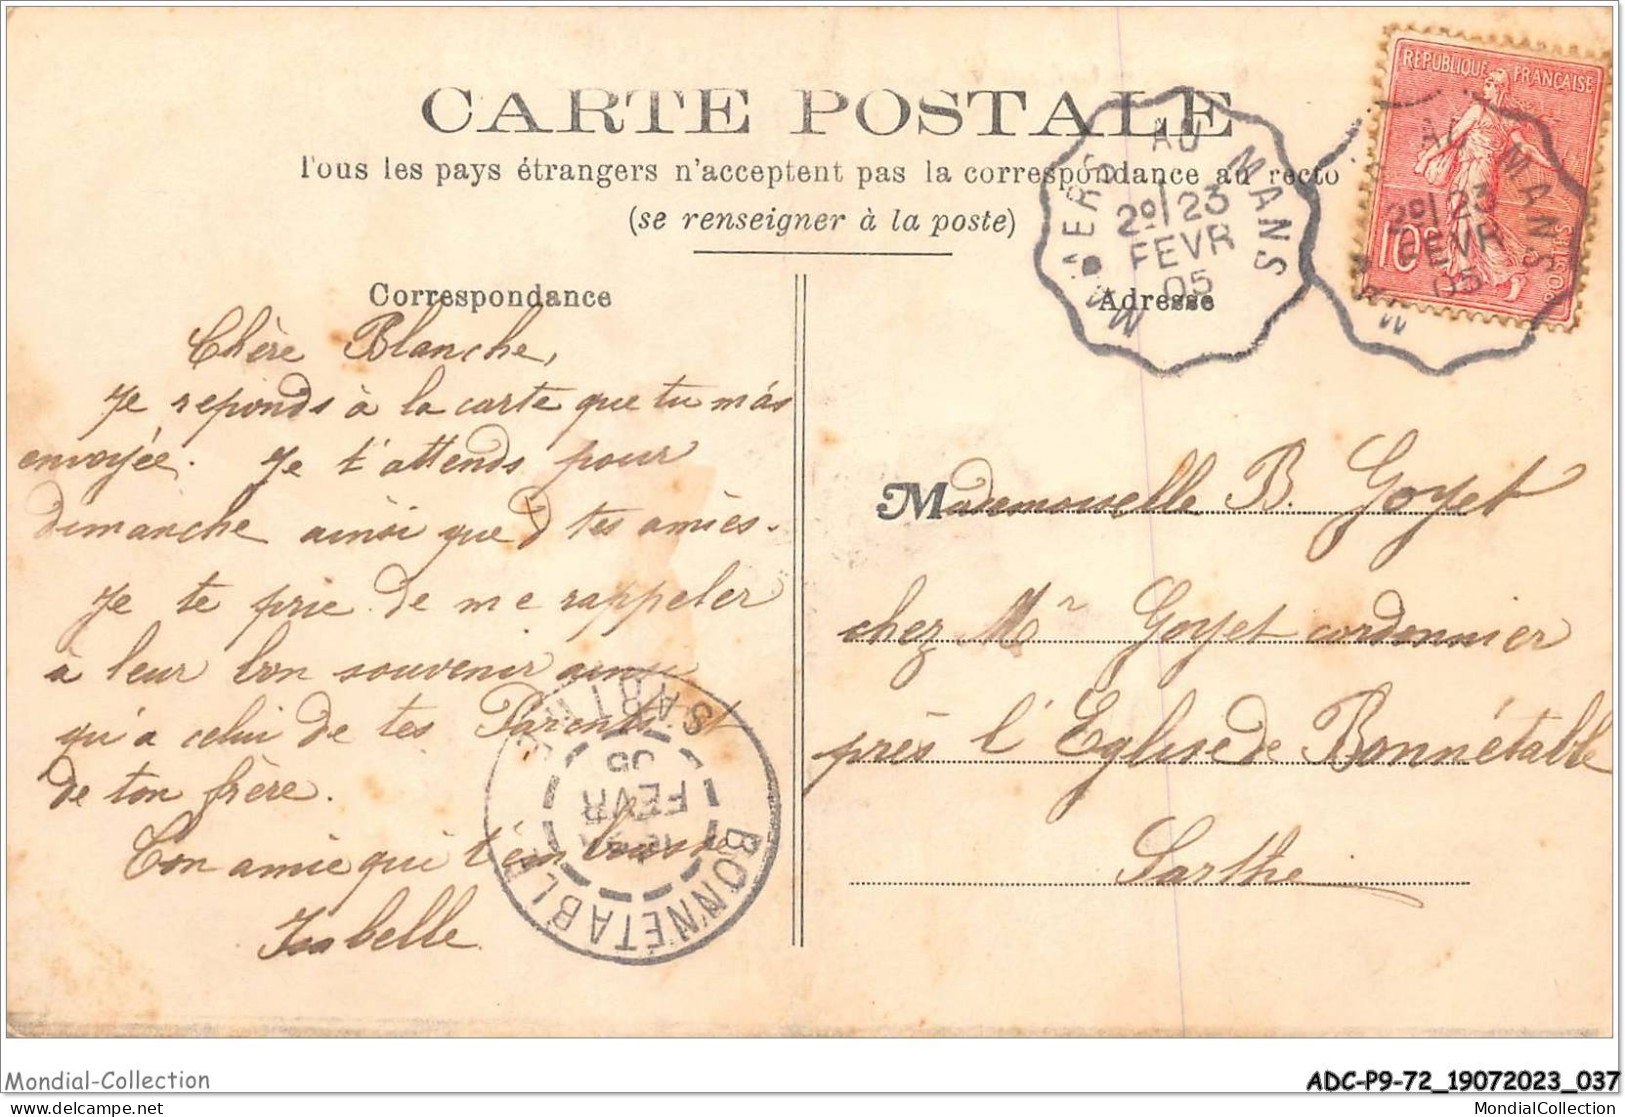 CARTE POSTALE
Tous les pays étrangers n'acceptent pas la correspondance au recto
(se renseigner à la poste)
REPUBLIQUE FRANÇAISE
10c
POSTES
AU MANS
2º/23
FEVR
05
AU MANS
2º/23
FEVR
05
Correspondance
Chère Blanche,
Je reponds à la carte que tu m'as
envoyée. Je t'attends pour
dimanche ainsi que tes amies.
Je te prie de me rappeler
à leur bon souvenir ainsi
qu'a celui de tes Parents et
de ton frère.
Ton amie qui t'embrasse
Isabelle
BONNÉTABLE
SARTHE
FEVR
05
Adresse
Mademoiselle B. Goyet
chez Mr Goyet cordonnier
près l'Eglise de Bonnétable
Sarthe
Mondial-Collection
ADC-P9-72_19072023_037
www.delcampe.net
MondialCollection